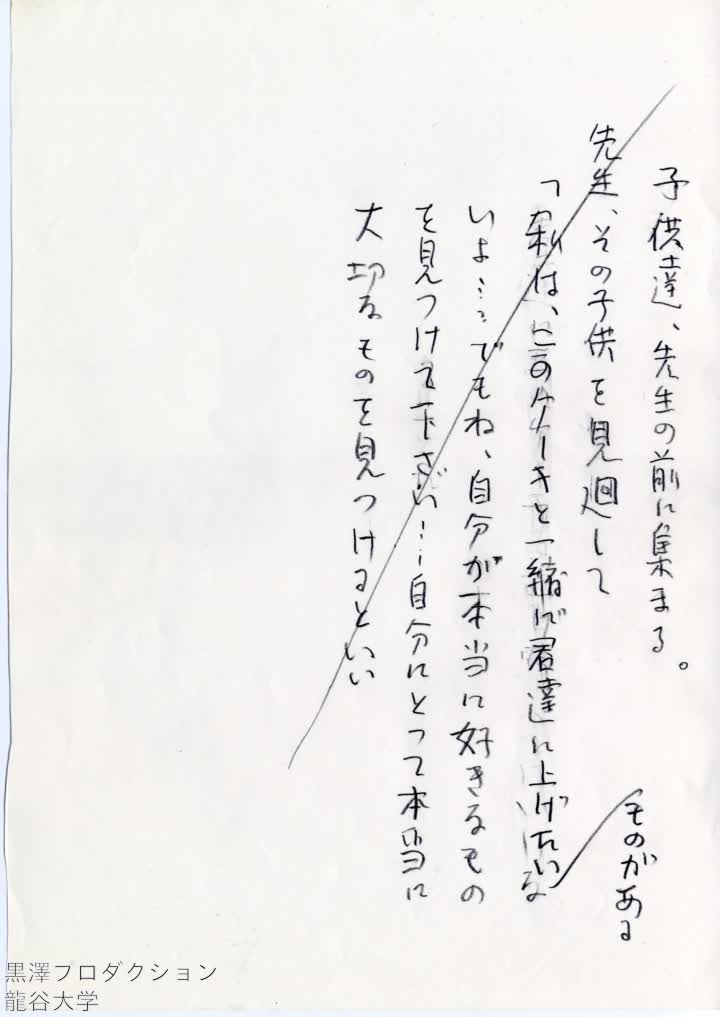 子供達、先生の前に集まる。
先生、その子供を見廻して
「私は、このケーキと一緒に君達に上げたい
ものがある
いよ……でもね、自分が本当に好きなもの
を見つけて下さい……自分にとって本当に
大切なものを見つけるといい
黒澤プロダクション
龍谷大学